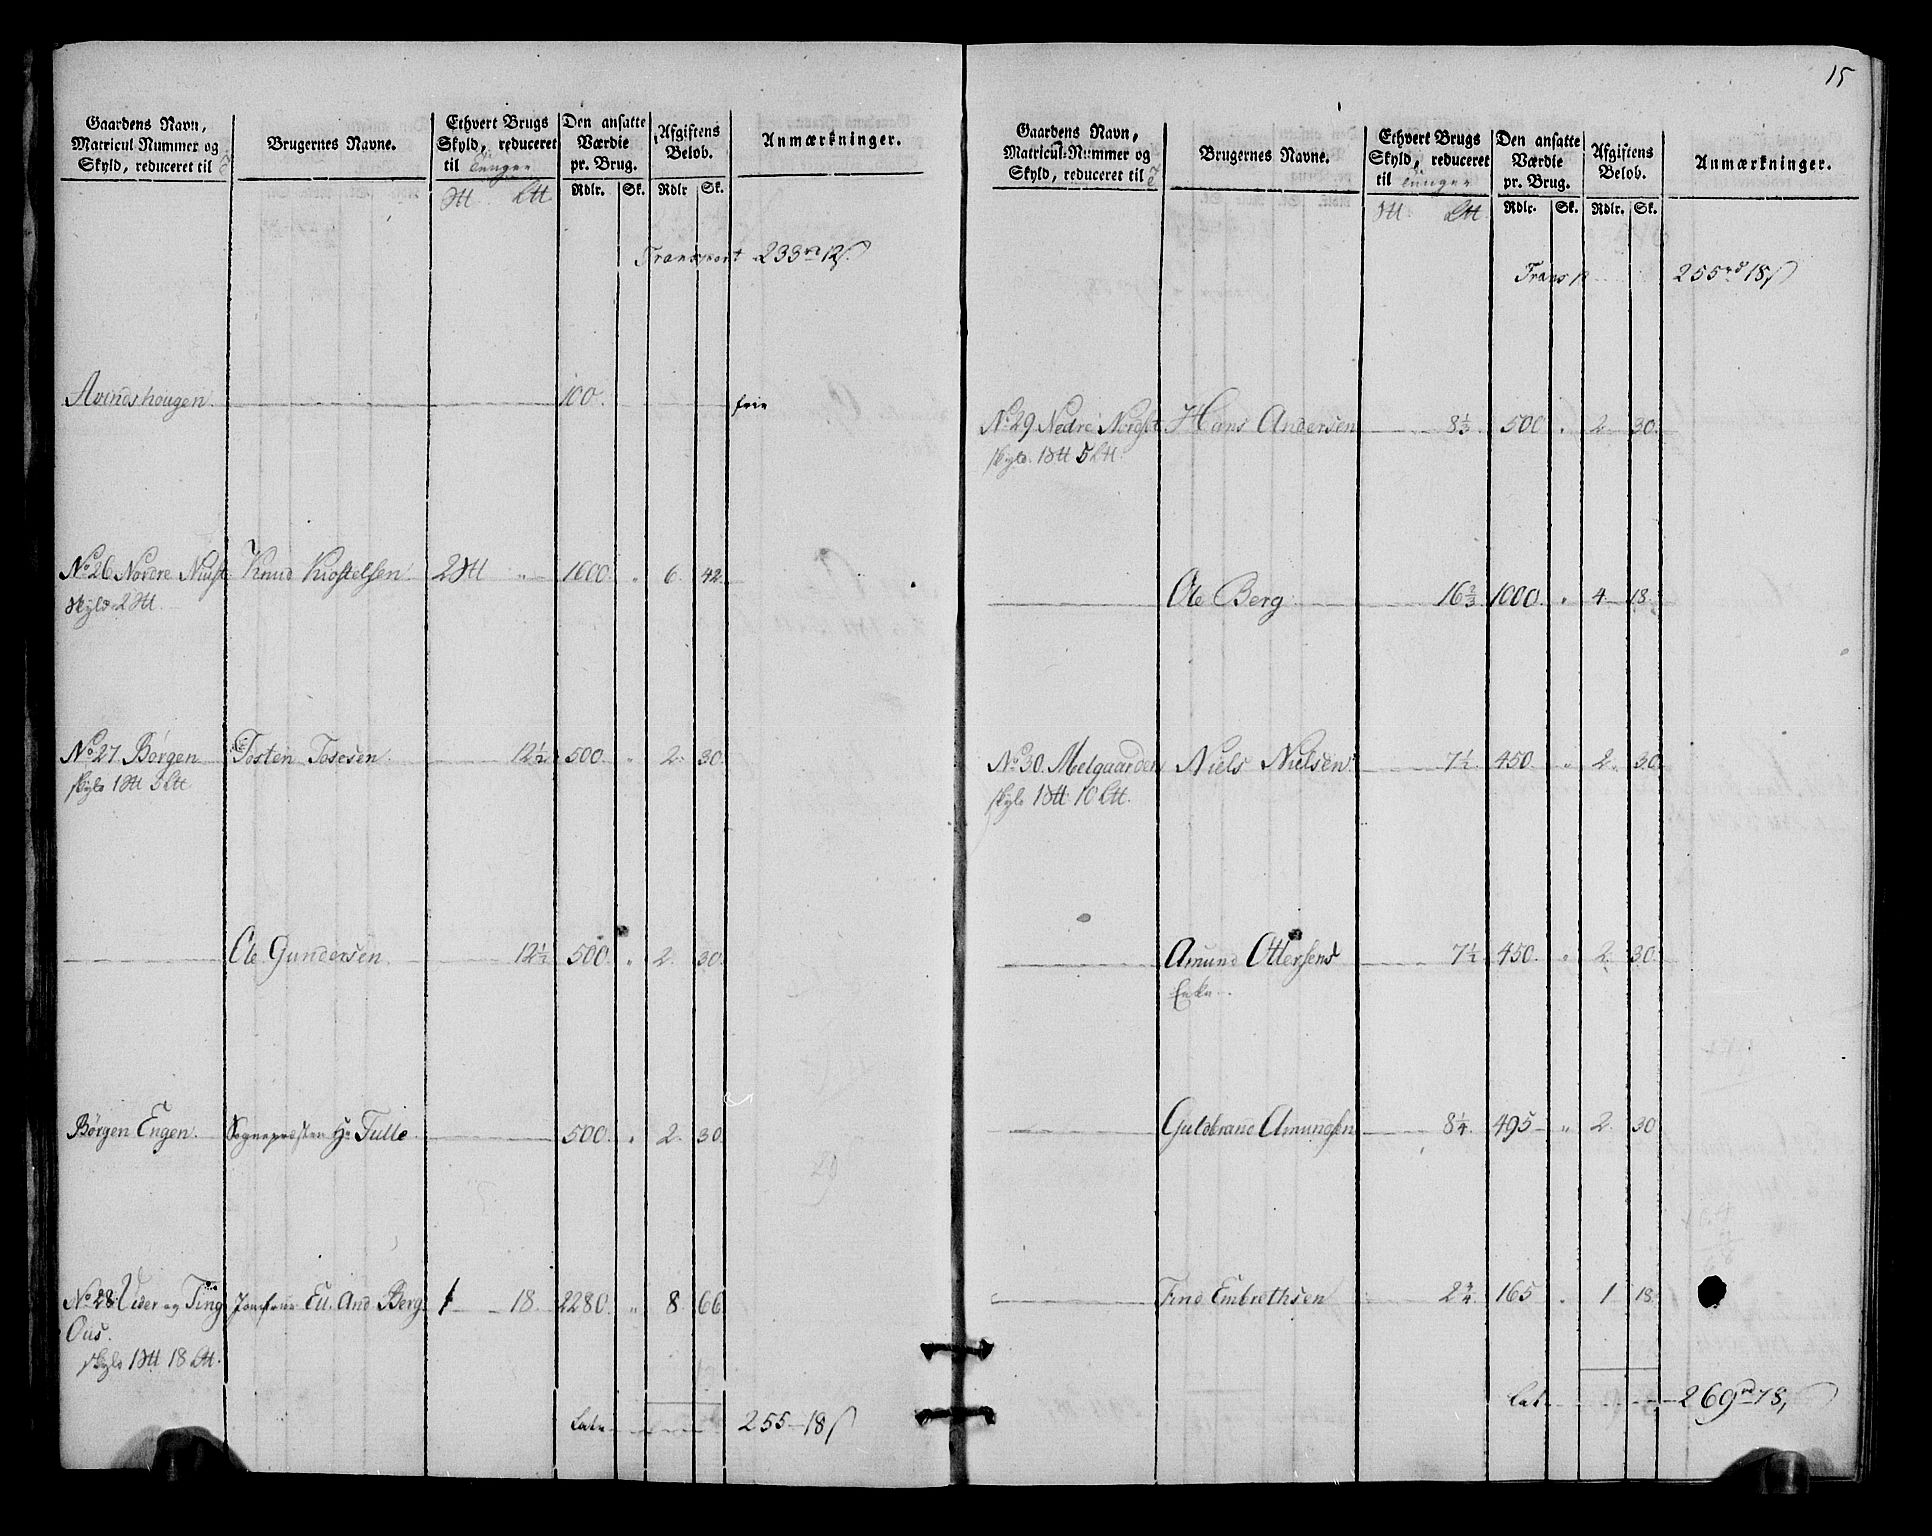 Gaardens Navn,
Matricul Nummer og
Skyld, reduceret til
Brugernes Navne.
Ethvert Brugs
Skyld, reduceret
til Tunger
Den ansatte
Værdie
pr. Brug.
Afgiftens
Beløb.
Anmærkninger.
Rdlr. Sk. Rdlr Sk.
Transport 233 rd 12 s
Avindshougen 100. frie
No 26 Nordre Niust Knud Kiostelsen 2 " 1600 " 6. 42.
skyld 2
No 27 Børgen Tosten Tosesen 12½ 500. " 2. 30.
skyld 1 5
Ole Gundersen 12½ 500. " 2. 30.
Børgen Engen. Sognepresten Hr Tulle 500. " 2. 30.
No 28 Vider og Ting Jomfrue Eu. And Berg 1 18. 2280. " 8 66
Ous.
skyld 1 18
Late 255 - 18 s
15
Gaardens Navn,
Matricul-Nummer og
Skyld, reduceret til
Brugernes Navne.
Ethvert Brugs
Skyld, reduceret
til Tunger
Den ansatte
Værdie
pr. Brug.
Afgiftens
Beløb.
Anmærkninger.
Rdlr. Sk. Rdlr. Sk.
Transp 255 rd 18 s
No 29 Nedre Nordset Hans Andersen 8⅓ 500 " 2 30.
skyld 1 5
Ole Berg 16⅔ 1000. " 4 18.
No 30. Melgaarden Niels Nielsen 7½ 450. " 2. 30.
skyld 1 10
Amund Ottersens 7½ 450. " 2. 30.
Enke
Guldbrand Amundsen 8¼ 495 " 2. 30
Find Embrethsen 2¾ 165 " 1 18.
Lat 269 rd 78,